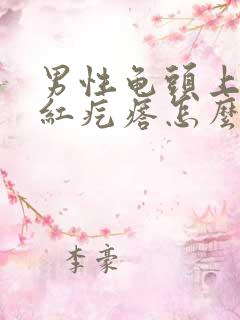 男性龟頭上
紅疙瘩怎麼
李豪